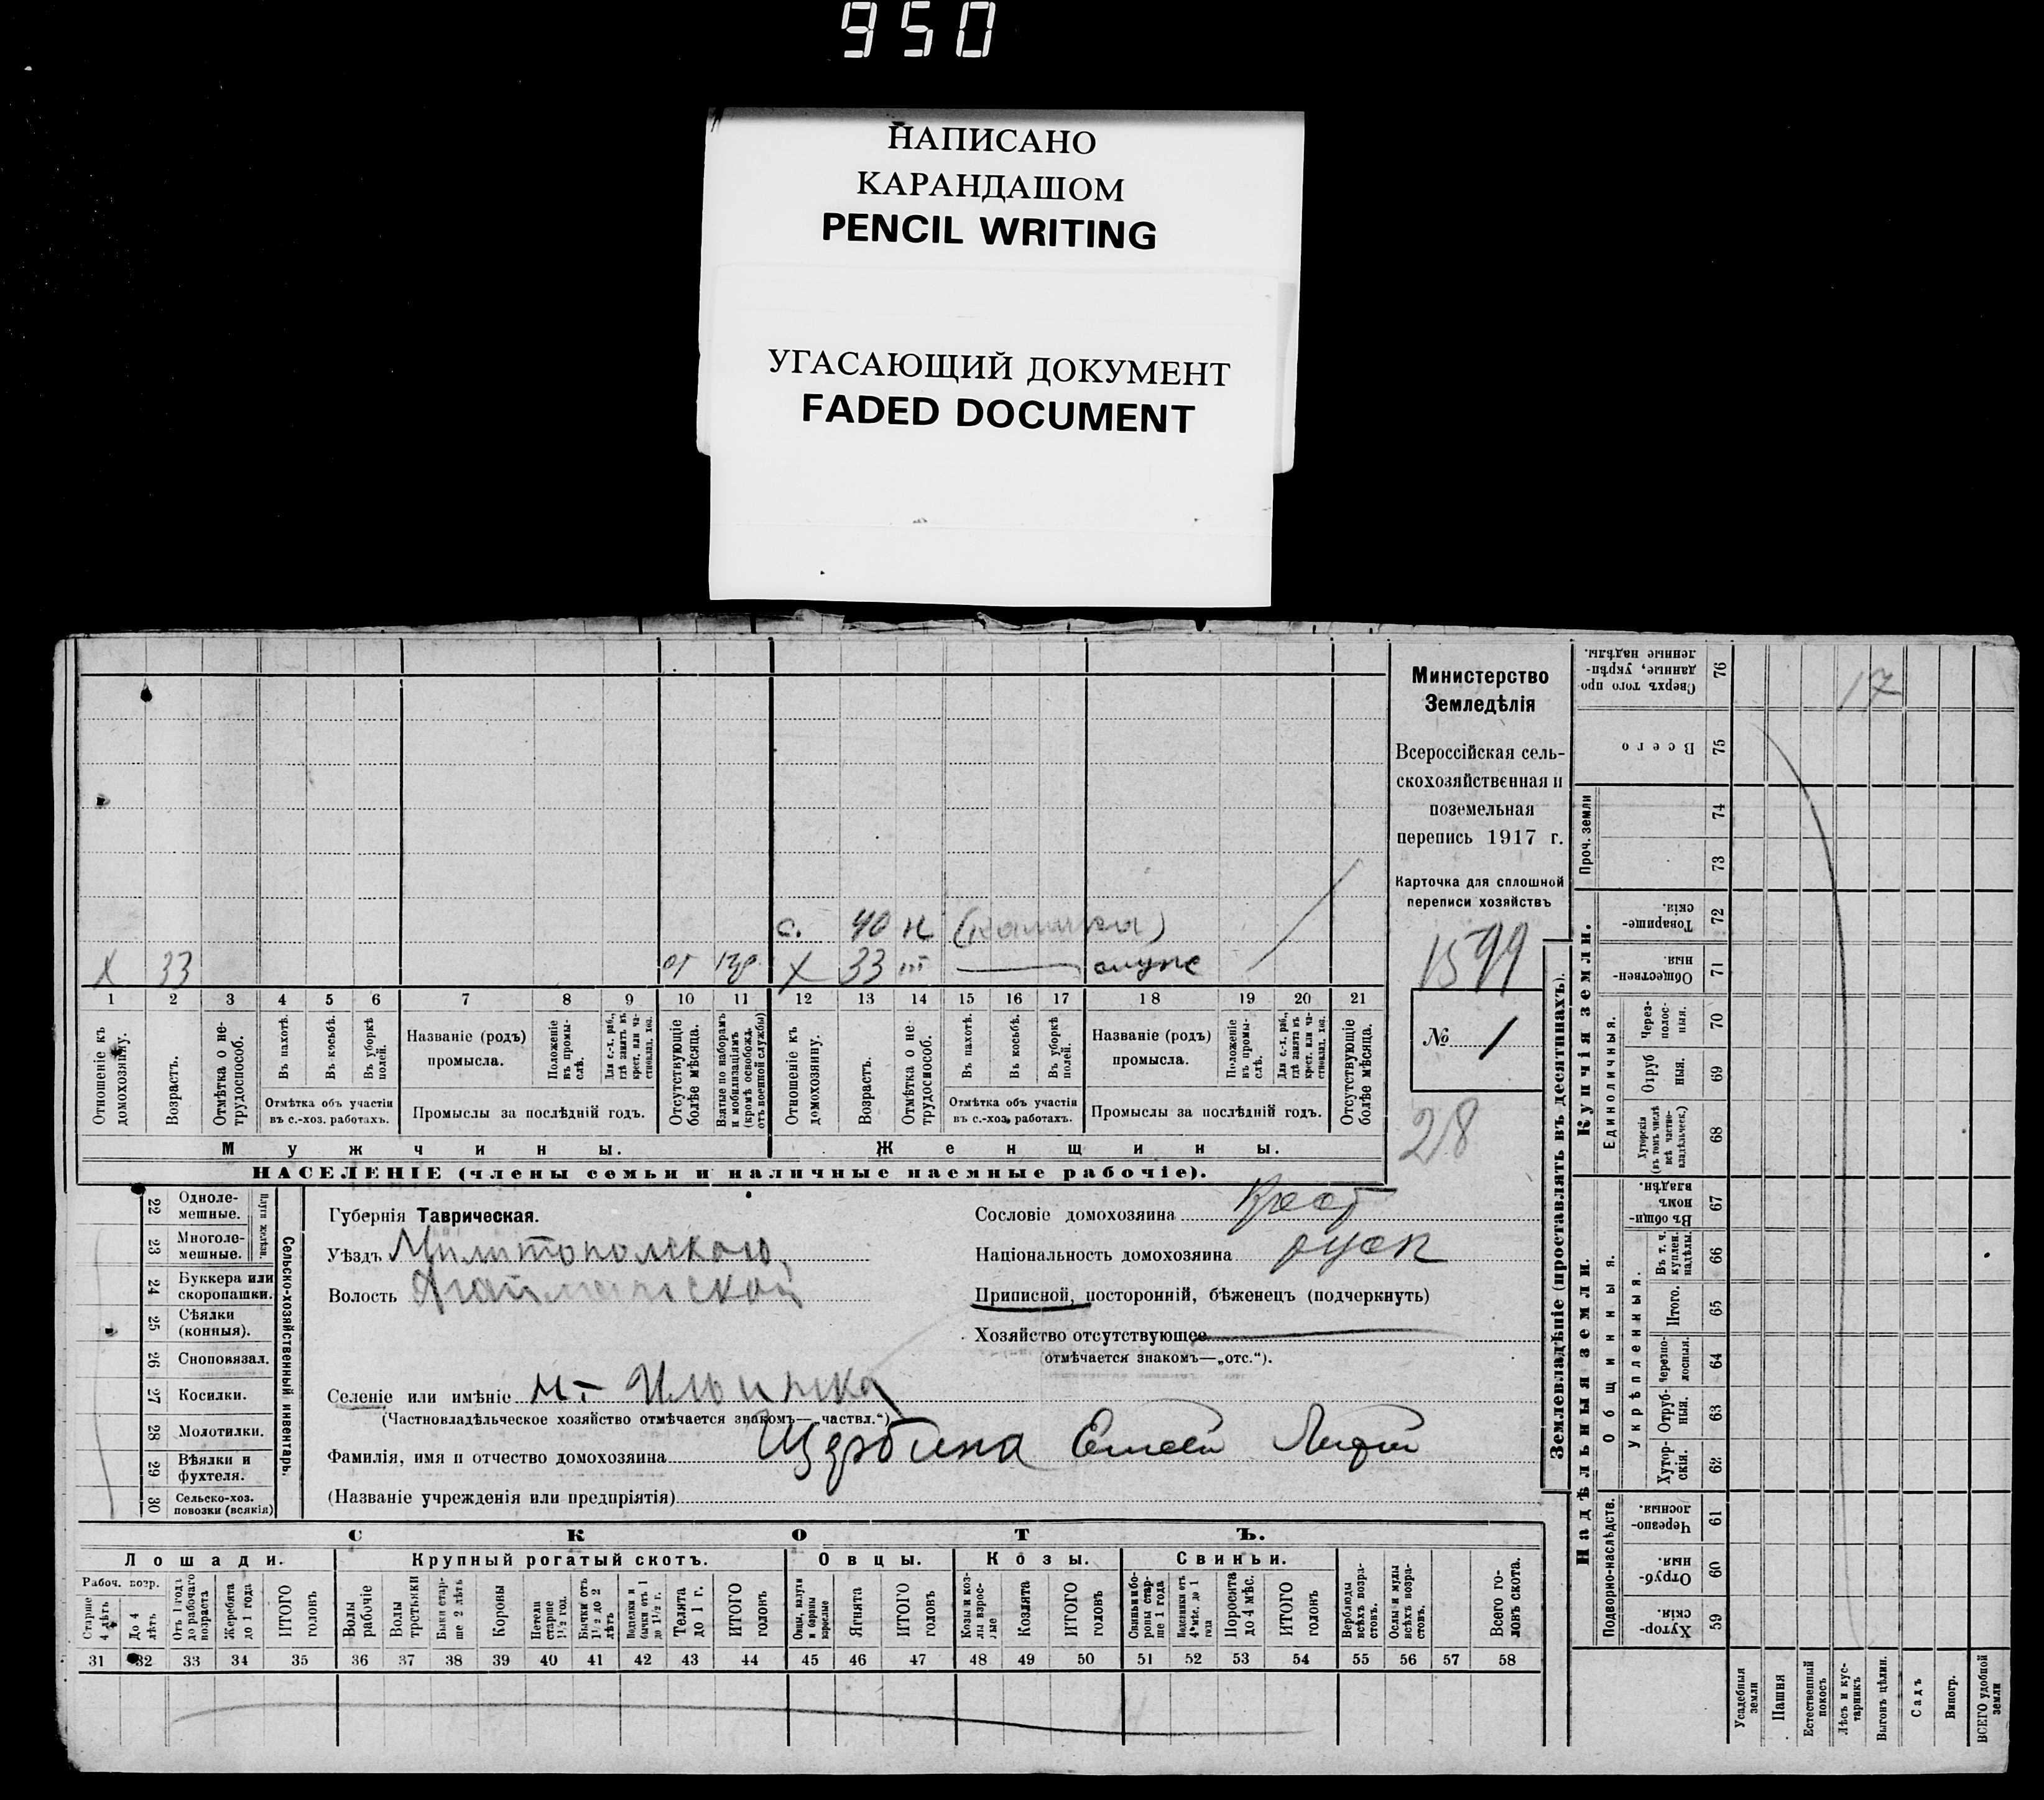 950
НАПИСАНО
КАРАНДАШОМ
PENCIL WRITING
УГАСАЮЩИЙ ДОКУМЕНТ
FADED DOCUMENT
Министерство
Земледѣлія
Всероссійская сель-
скохозяйственная и
поземельная
перепись 1917 г.
Карточка для сплошной
переписи хозяйствъ
1599
№ 1
28
с. 40 н
х 33 от х 33
1 2 3 4 5 6 7 8 9 10 11 12 13 14 15 16 17 18 19 20 21
Отношеніе къ домохозяину.
Возрастъ.
Отмѣтка о не-трудоспособ.
Въ пахотѣ.
Въ косьбѣ.
Въ уборкѣ полей.
Отмѣтка объ участіи
въ с.-хоз. работахъ.
Названіе (родъ)
промысла.
Положеніе въ промы-слѣ.
Для с.-х. раб., гдѣ занятъ въ крест. или ча-стновлад. хоз.
Промыслы за послѣдній годъ.
Отсутствующіе болѣе мѣсяца.
Взятые по наборамъ и мобилизаціямъ (кромѣ освобожд. отъ военной службы)
Отношеніе къ домохозяину.
Возрастъ.
Отмѣтка о не-трудоспособ.
Въ пахотѣ.
Въ косьбѣ.
Въ уборкѣ полей.
Отмѣтка объ участіи
въ с.-хоз. работахъ.
Названіе (родъ)
промысла.
Положеніе въ промы-слѣ.
Для с.-х. раб., гдѣ занята въ крест. или ча-стновлад. хоз.
Промыслы за послѣдній годъ.
Отсутствующіе болѣе мѣсяца.
Мужчины. Женщины.
НАСЕЛЕНІЕ (члены семьи и наличные наемные рабочіе).
22 Одноле-мешные.
23 Многоле-мешные.
Плуги желѣзн.
24 Буккера или скоропашки.
25 Сѣялки (конныя).
26 Сноповязал.
27 Косилки.
28 Молотилки.
29 Вѣялки и фухтеля.
30 Сельско-хоз. повозки (всякія)
Сельско-хозяйственный инвентарь.
Губернія Таврическая.
Уѣздъ Мелитопольскаго
Волость
Селеніе или имѣніе Ильинка
(Частновладѣльческое хозяйство отмѣчается знакомъ—„частвл.“)
Фамилія, имя и отчество домохозяина Щербина
(Названіе учрежденія или предпріятія)
Сословіе домохозяина крест
Національность домохозяина русск
Приписной, посторонній, бѣженецъ (подчеркнуть)
Хозяйство отсутствующее
(отмѣчается знакомъ—„отс.“).
СКОТЪ.
Лошади. Крупный рогатый скотъ. Овцы. Козы. Свиньи.
Рабоч. возр.
Старше 4 лѣтъ
До 4 лѣтъ.
Отъ 1 года до рабочаго возраста
Жеребята до 1 года
ИТОГО головъ
Волы рабочіе
Волы третьяки
Быки стар-ше 2 лѣтъ
Коровы
Нетели старше 1½ год.
Бычки отъ 1½ до 2 лѣтъ
Телки и бычки отъ 1 до 1½ г.
Телята до 1 г.
ИТОГО головъ
Овцы, валухи и бараны взрослые
Ягнята
ИТОГО головъ
Козы и коз-лы взрос-лые
Козлята
ИТОГО головъ
Свиньи и бо-ровы стар-ше 1 года
Подсвинки отъ 4 мѣс. до 1 года
Поросята до 4 мѣс.
ИТОГО головъ
Верблюды всѣхъ возра-стовъ.
Ослы и мулы всѣхъ возра-стовъ.
Всего го-ловъ скота.
31 32 33 34 35 36 37 38 39 40 41 42 43 44 45 46 47 48 49 50 51 52 53 54 55 56 57 58
Землевладѣніе (проставлять въ десятинахъ).
Надѣльныя земли. Купчія земли. Проч. земли
Подворно-наслѣдств.
Общинныя.
Укрѣпленныя.
Единоличныя.
59 Хутор-скія.
60 Отруб-ныя.
61 Черезпо-лосныя.
62 Хутор-скія.
63 Отруб-ныя.
64 Черезпо-лосныя.
65 Итого.
66 Въ т. ч. куплен. надѣлы.
67 Въ общи-номъ владѣн.
68 Хуторскія (въ томъ числѣ всѣ частно-владѣльческ.)
69 Отруб ныя.
70 Через-полос-ныя.
71 Обществен-ныя
72 Товарище-скія.
73
74
75 Всего
76 Сверхъ того про данные, укрѣп-ленные надѣлы.
17
Усадебныя земли
Пашня
Естественный покосъ
Лѣсъ и кус-тарникъ
Выгонъ цѣлин.
Садъ
Виногр.
ВСЕГО удобной земли